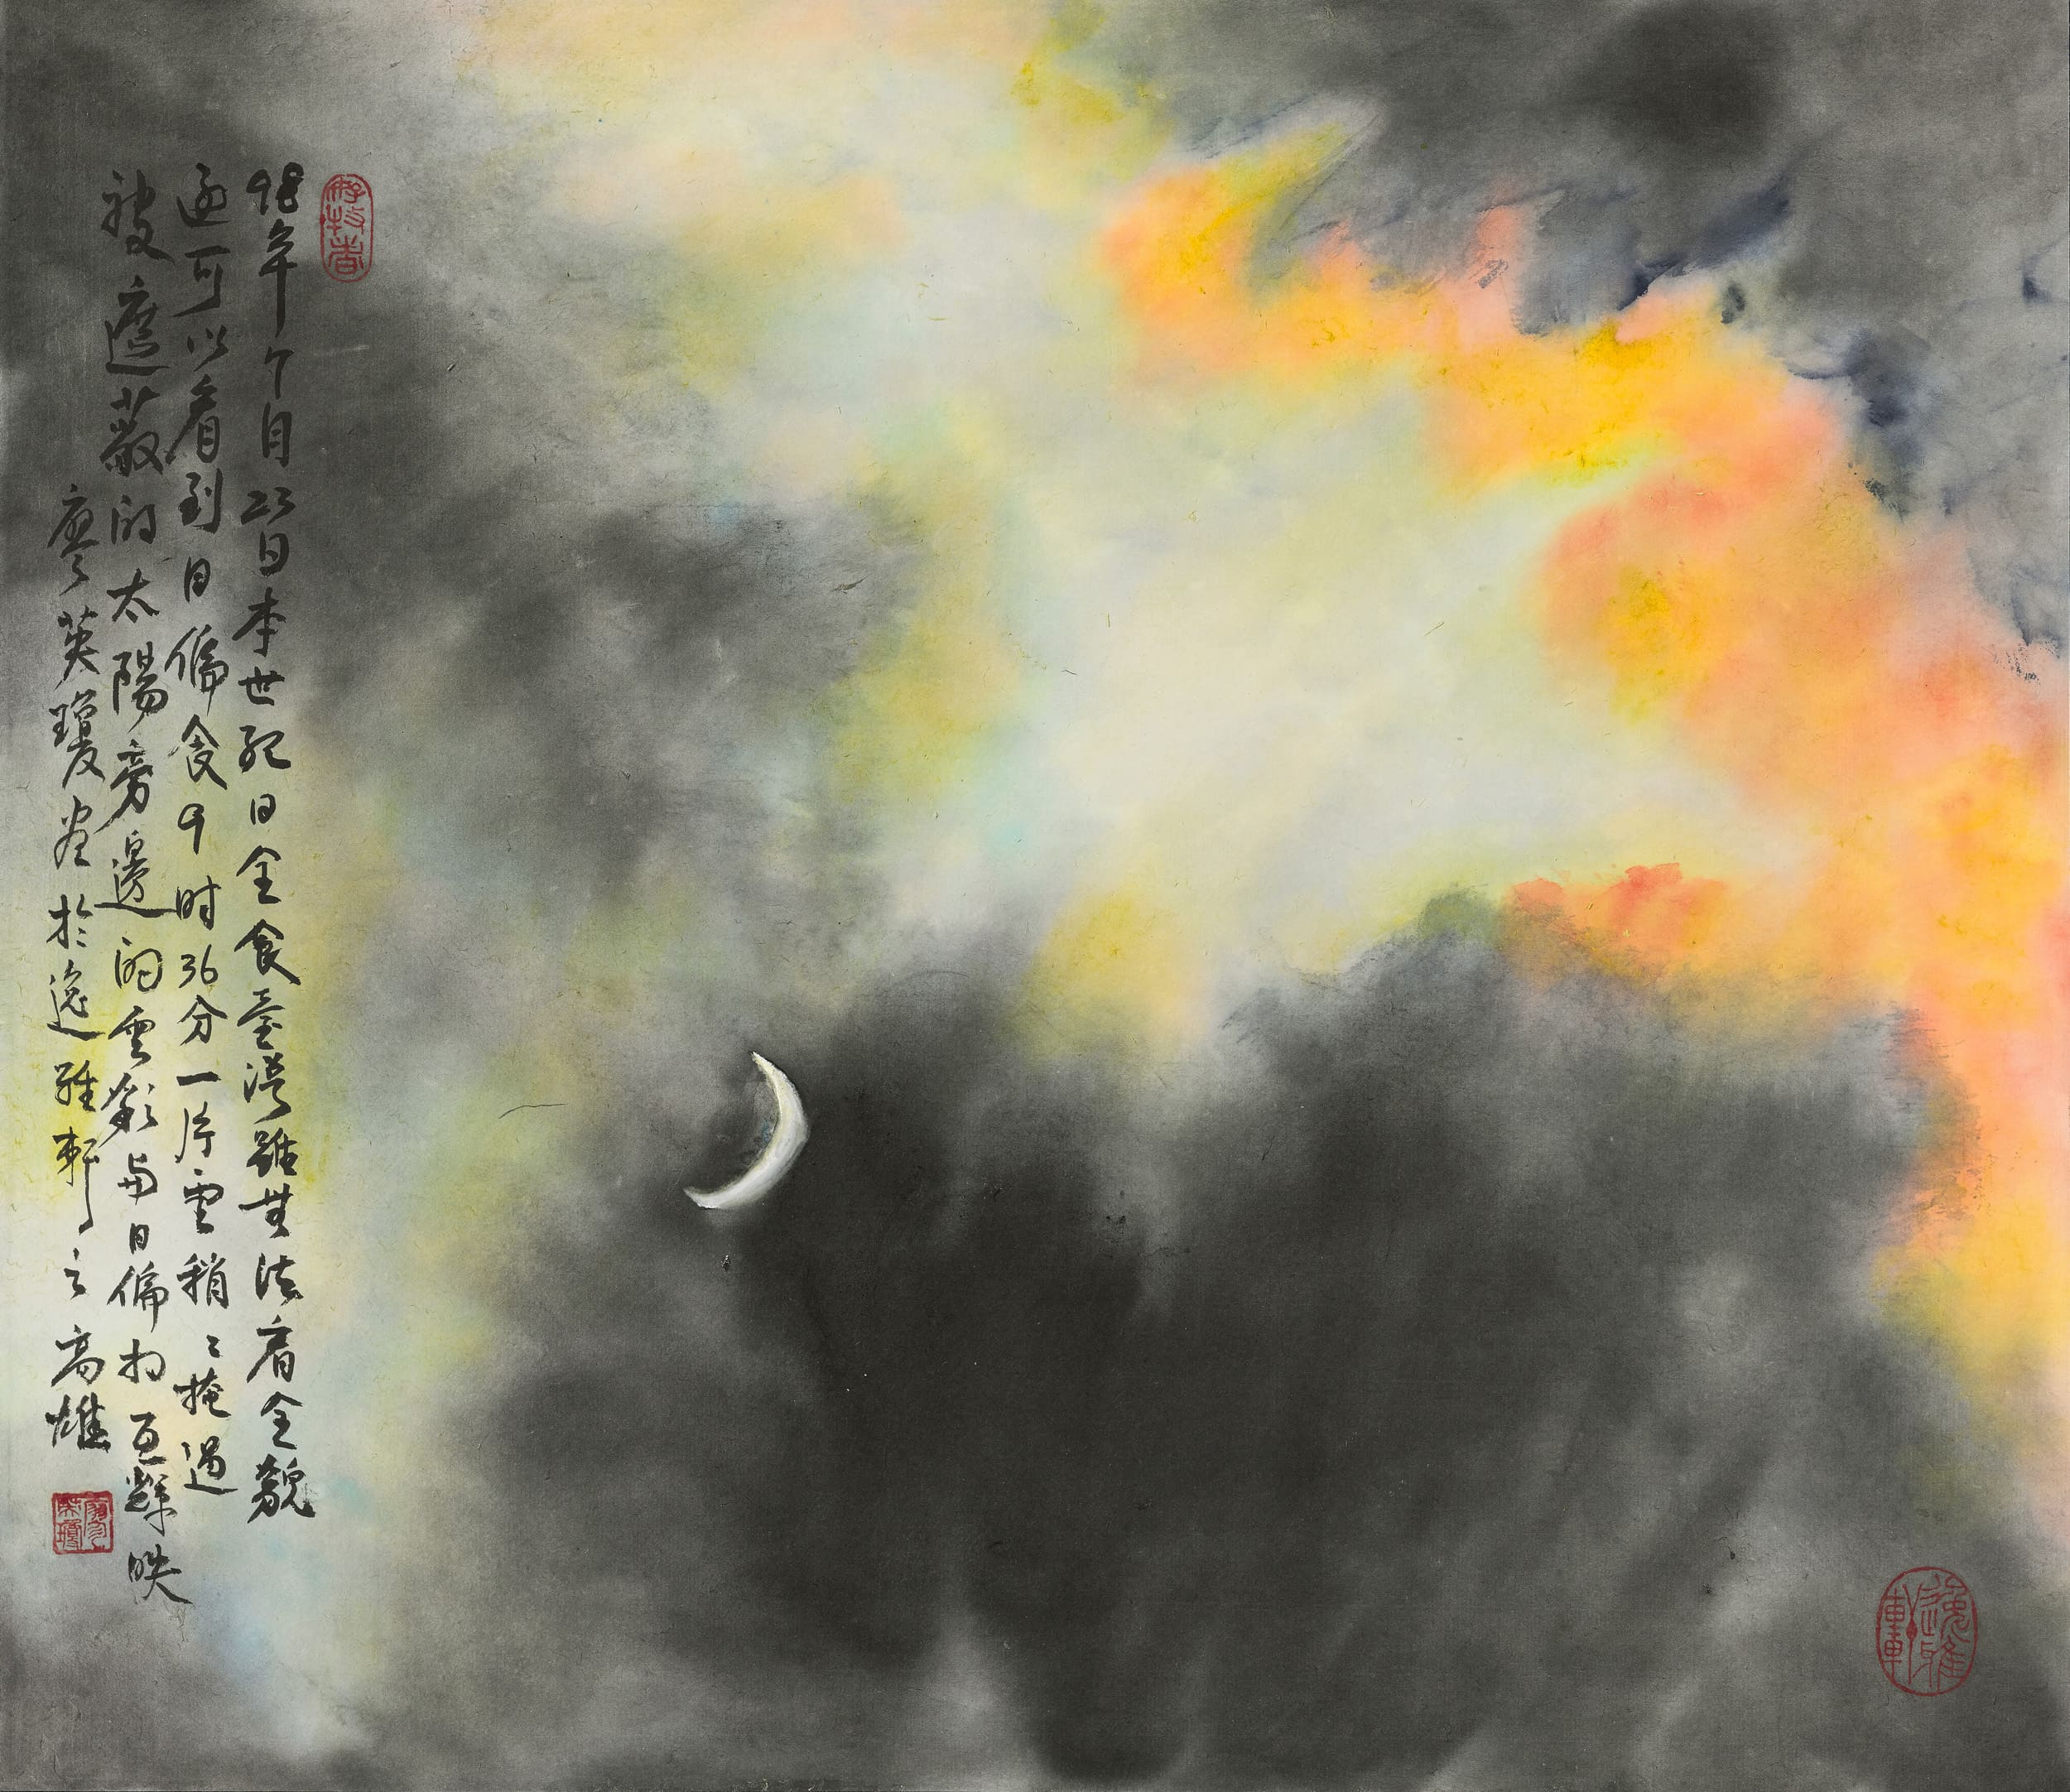 98年7月22日本世紀日全食臺灣雖無法看全貌
還可以看到日偏食9时36分一片雲稍稍掩過
被遮蔽的太陽旁邊的雲彩与日偏相互輝映
廖英瓊畫於逸雅軒之高雄
逸雅軒